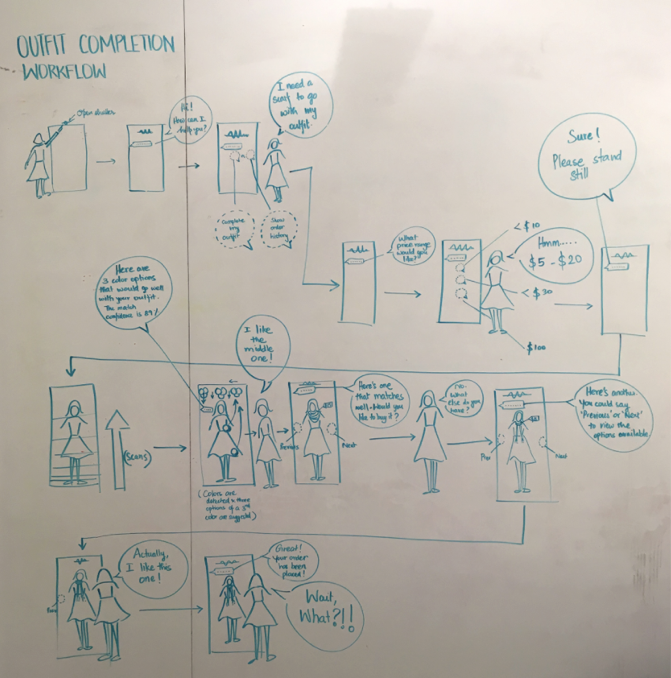 OUTFIT COMPLETION
WORKFLOW
Open shutter
Hi!
How can I
help you?
I need a
scarf to go
with my
outfit
Complete
my
outfit
Show
order
history
Sure!
Please stand
still
What
price range
would you
like?
< $10
Hmm....
$5 - $20
< $30
$100
Here are
3 color options
that would go well
with your outfit.
The match
confidence is 89%
(scans)
I like
the
middle
one!
(Colors are
detected & three
options of a
color are suggested)
Here's one
that matches
well. Would you
like to buy it?
Previous
Next
no.
What
else do you
have?
Here's another
You could say
'Previous' or 'Next'
to view the
options available
Prev
Next
Actually,
I like this
one!
Prev
Great!
Your order
has been
placed!
Wait,
What?!!